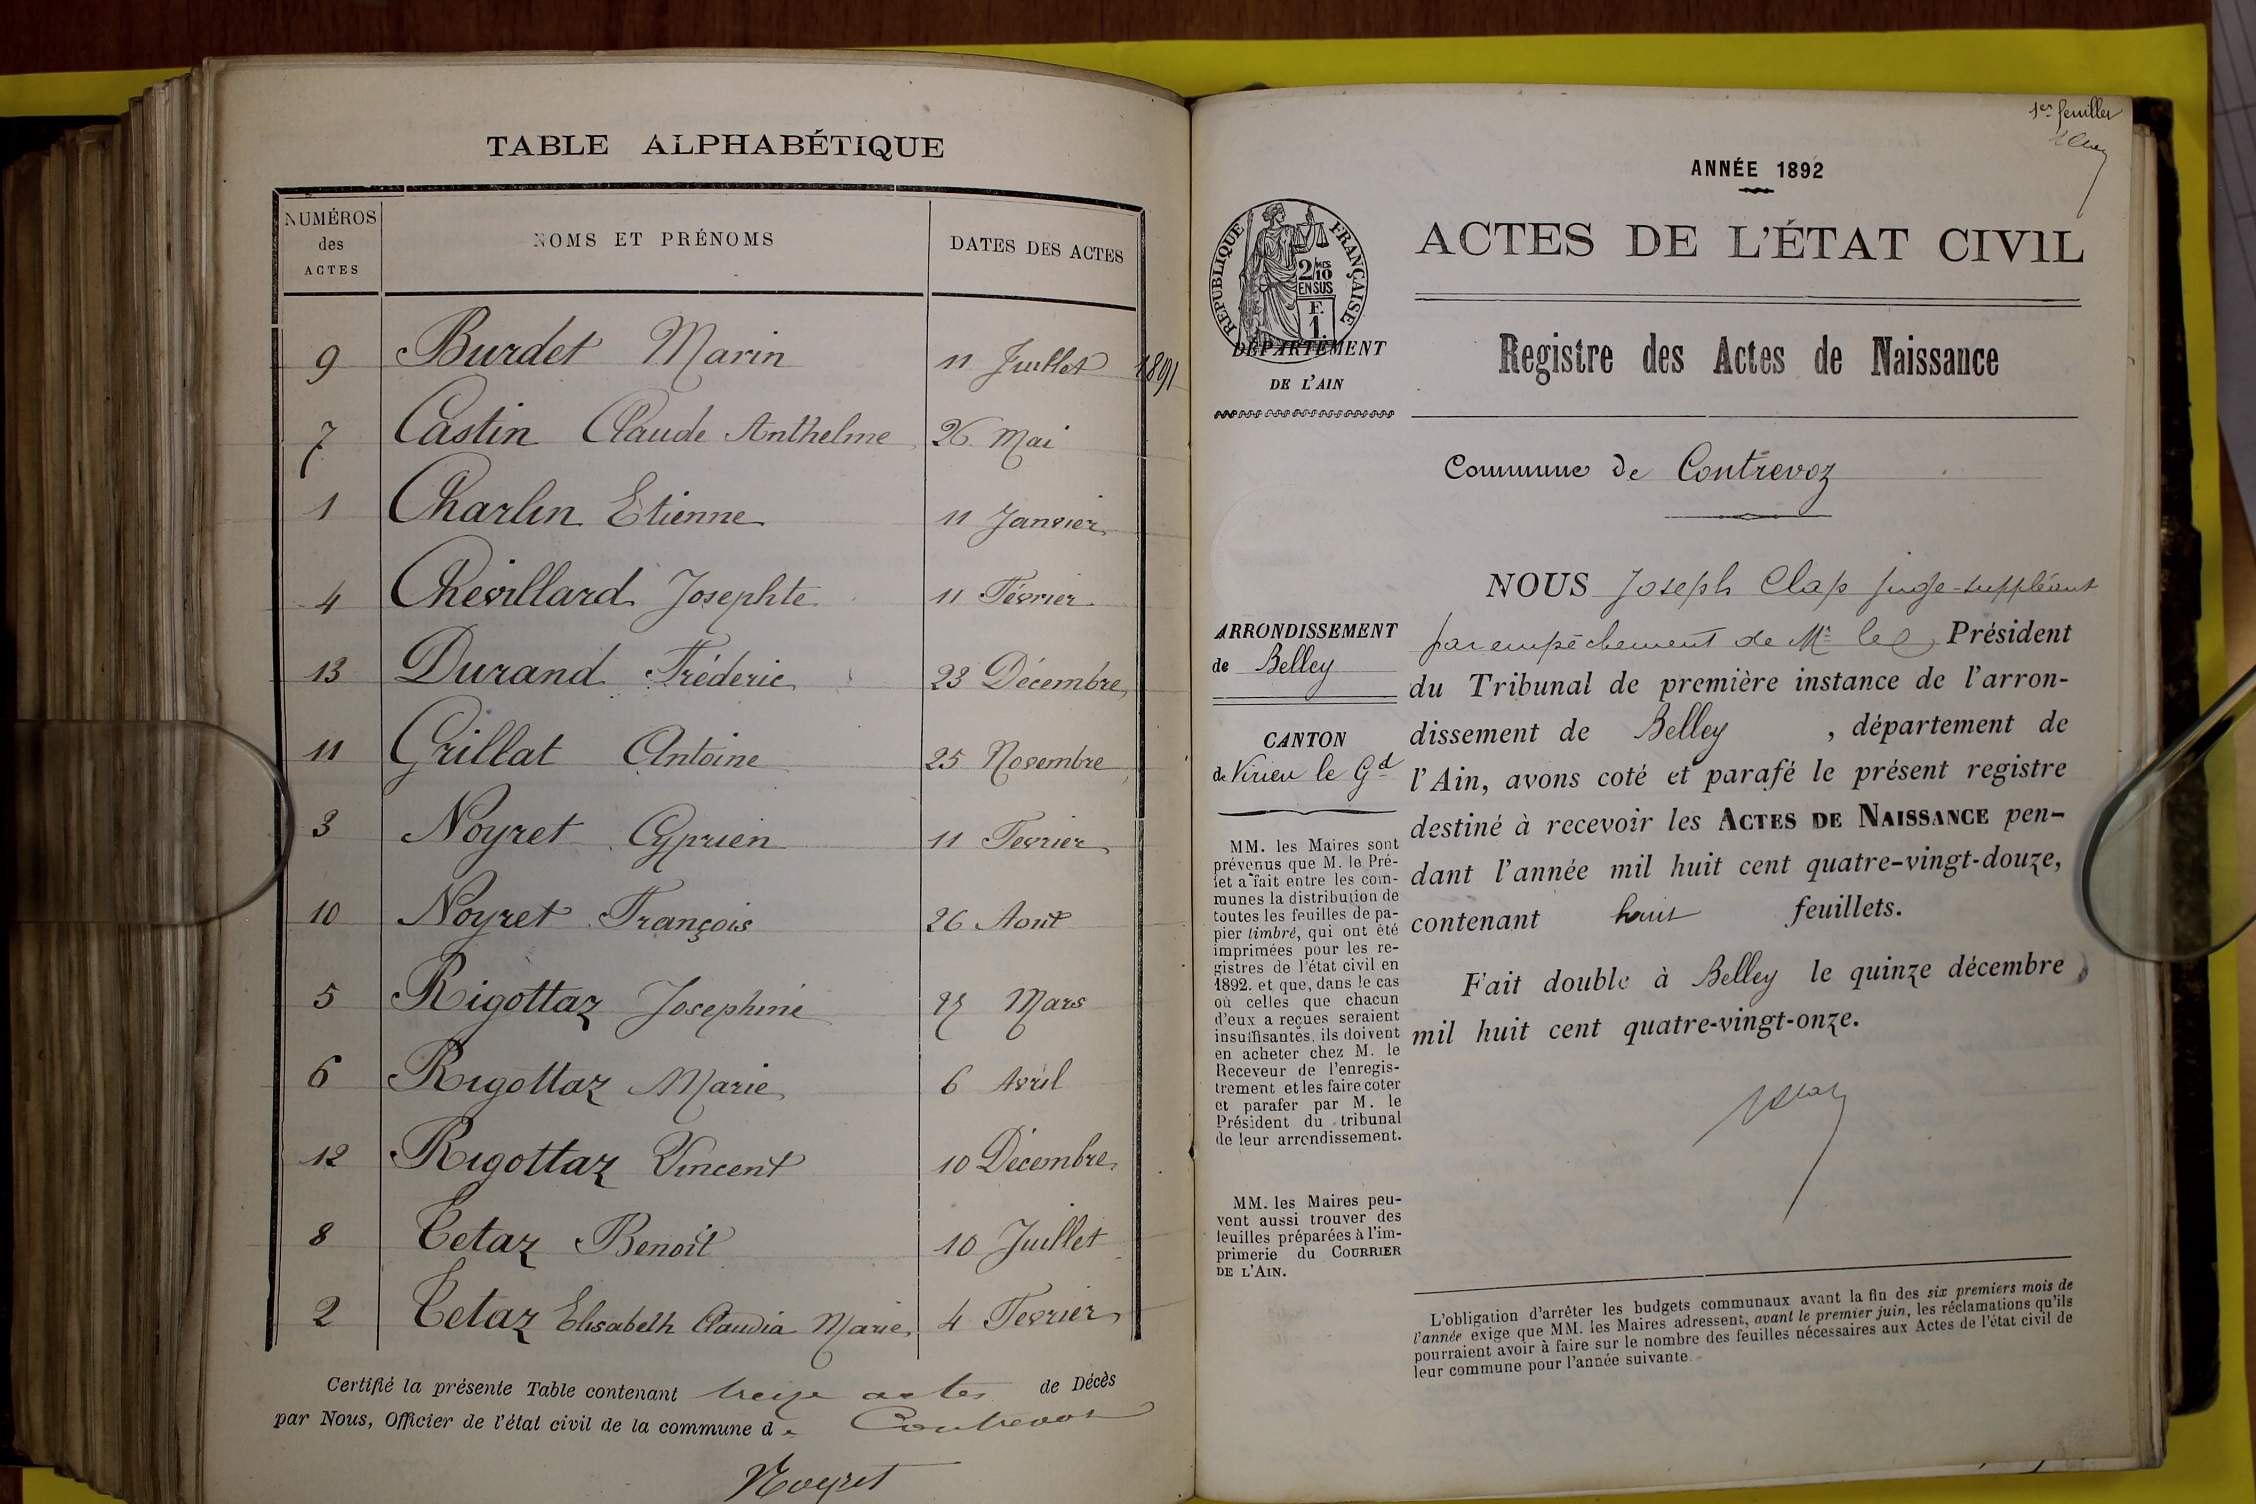 TABLE ALPHABÉTIQUE
NUMÉROS des ACTES NOMS ET PRÉNOMS DATES DES ACTES
9 Burdet Marin 11 Juillet 1891
7 Castin Claude Anthelme 26 Mai
1 Charlin Etienne 11 Janvier
4 Chevillard Josephte 11 Février
13 Durand Fréderic 23 Décembre
11 Grillat Antoine 25 Novembre
3 Noyret Cyprien 11 Fevrier
10 Noyret François 26 Aout
5 Rigottaz Josephine Mars
6 Rigottaz Marie 6 Avril
12 Rigottaz Vincent 10 Décembre
8 Tetaz Benoit 10 Juillet
2 Tetaz Elisabeth Claudia Marie 4 Fevrier
Certifié la présente Table contenant treize actes de Décès
par Nous, Officier de l'état civil de la commune de Contrevoz
Noyret
1er feuillet
ANNÉE 1892
ACTES DE L'ÉTAT CIVIL
RÉPUBLIQUE FRANÇAISE
2/10 MES
EN SUS
F.
1.
DÉPARTEMENT
DE L'AIN
Registre des Actes de Naissance
Commune de Contrevoz
ARRONDISSEMENT
de Belley
CANTON
de Virieu le Gd
MM. les Maires sont
prévenus que M. le Pré-
fet a fait entre les com-
munes la distribution de
toutes les feuilles de pa-
pier timbré, qui ont été
imprimées pour les re-
gistres de l'état civil en
1892. et que, dans le cas
où celles que chacun
d'eux a reçues seraient
insuffisantes, ils doivent
en acheter chez M. le
Receveur de l'enregis-
trement et les faire coter
et parafer par M. le
Président du tribunal
de leur arrondissement.
MM. les Maires peu-
vent aussi trouver des
feuilles préparées à l'im-
primerie du COURRIER
DE L'AIN.
NOUS Joseph Clap juge-suppléant
par empêchement de Mr le Président
du Tribunal de première instance de l'arron-
dissement de Belley, département de
l'Ain, avons coté et parafé le présent registre
destiné à recevoir les ACTES DE NAISSANCE pen-
dant l'année mil huit cent quatre-vingt-douze,
contenant huit feuillets.
Fait double à Belley le quinze décembre
mil huit cent quatre-vingt-onze.
L'obligation d'arrêter les budgets communaux avant la fin des six premiers mois de
l'année exige que MM. les Maires adressent, avant le premier juin, les réclamations qu'ils
pourraient avoir à faire sur le nombre des feuilles nécessaires aux Actes de l'état civil de
leur commune pour l'année suivante.